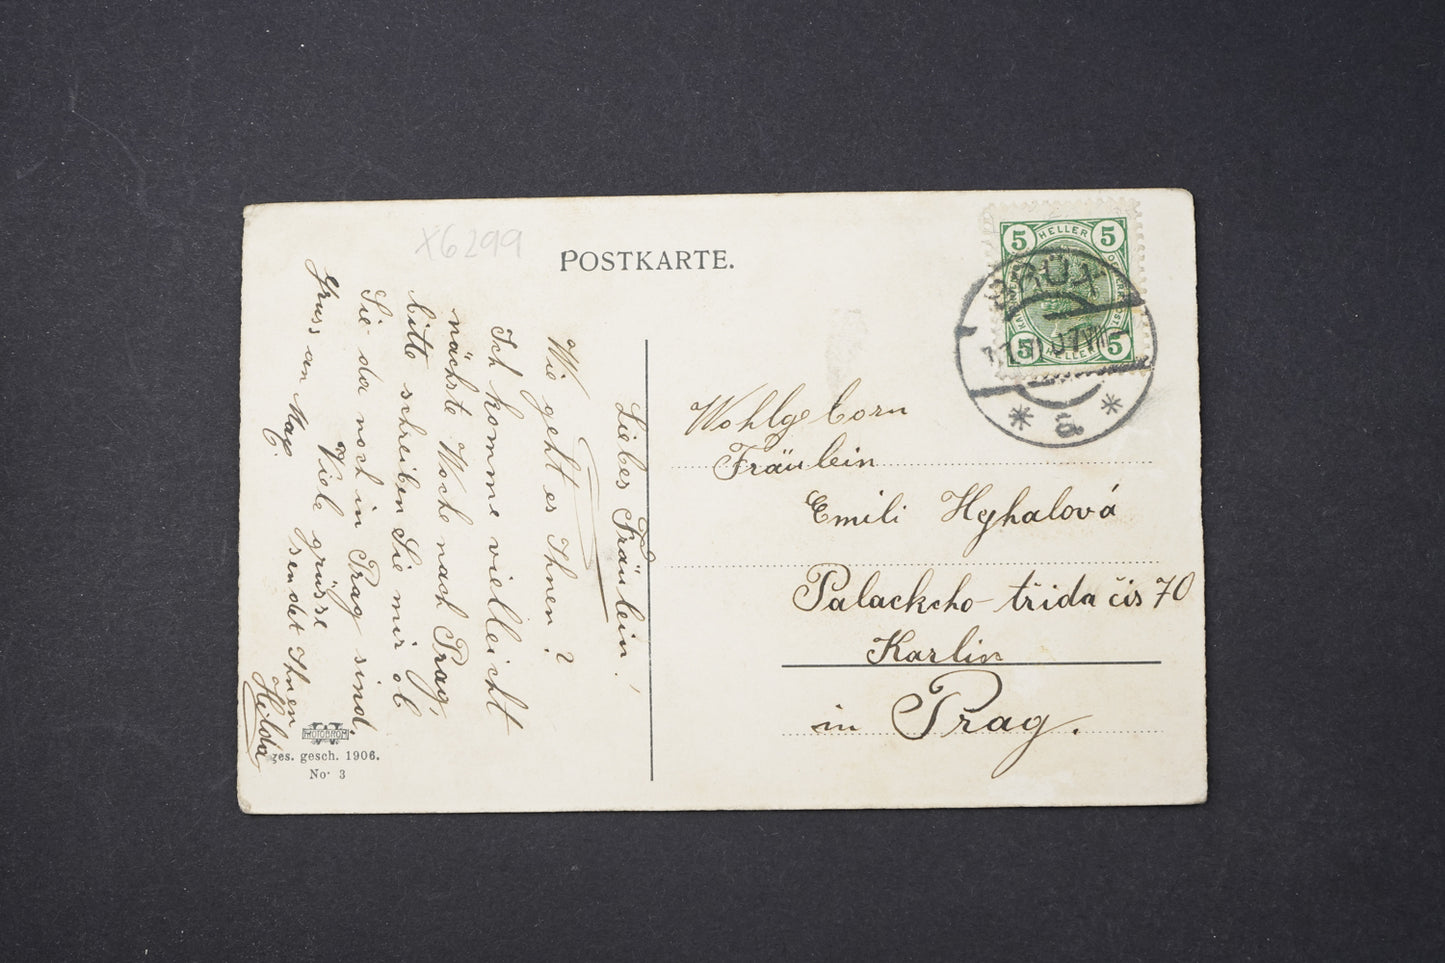 X6299
POSTKARTE.
5 HELLER 5
5 HELLER 5
BRÜX
07 VIII
a
Liebes Fräulein!
Wie geht es Ihnen?
Ich komme vielleicht
nächste Woche nach Prag,
bitte schreiben Sie mir ob
Sie da noch in Prag sind.
Viele grüsse
sendet Ihnen
Hilda
Gruss an Mag.
Wohlgeborn
Fräulein
Emili Hyhalová
Palackcho-třida čis 70
Karlin
in Prag.
ges. gesch. 1906.
No. 3